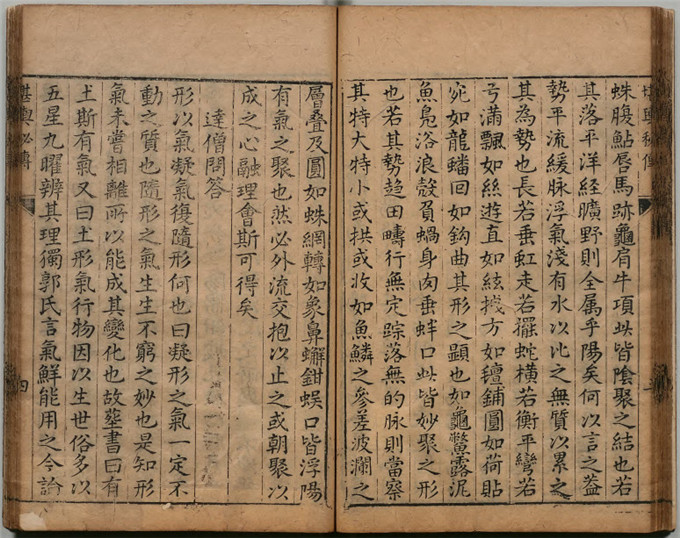 蛛腹鮎唇馬跡龜肩牛項此皆陰聚之結也若
其落平洋經曠野則全属乎陽矣何以言之蓋
勢平流緩脉浮氣淺有水以比之無質以累之
其為勢也長若垂虹走若擺蛇橫若衡平彎若
弓滿飄如絲遊直如絃方如氊鋪圓如荷貼
宛如龍蟠回如鈎曲其形之顯也如龜鱉露泥
魚鳧浴浪殼負蝸身肉垂蚌口此皆妙聚之形
也若其勢趋田疇行無定踪落無的脉則當察
其特大特小或拱或收如魚鱗之參差波瀾之
層叠及圓如蛛網轉如象鼻蠏鉗蜈口皆浮陽
有氣之聚也然必外流交抱以止之或朝聚以
成之心融理會斯可得矣
達僧問答
形以氣凝氣復隨形何也曰凝形之氣一定不
動之質也隨形之氣生生不窮之妙也是知形
氣未嘗相離所以能成其變化也故塟書曰有
土斯有氣又曰土形氣行物因以生世俗多以
五星九曜辨其理獨郭氏言氣鮮能用之今論
四